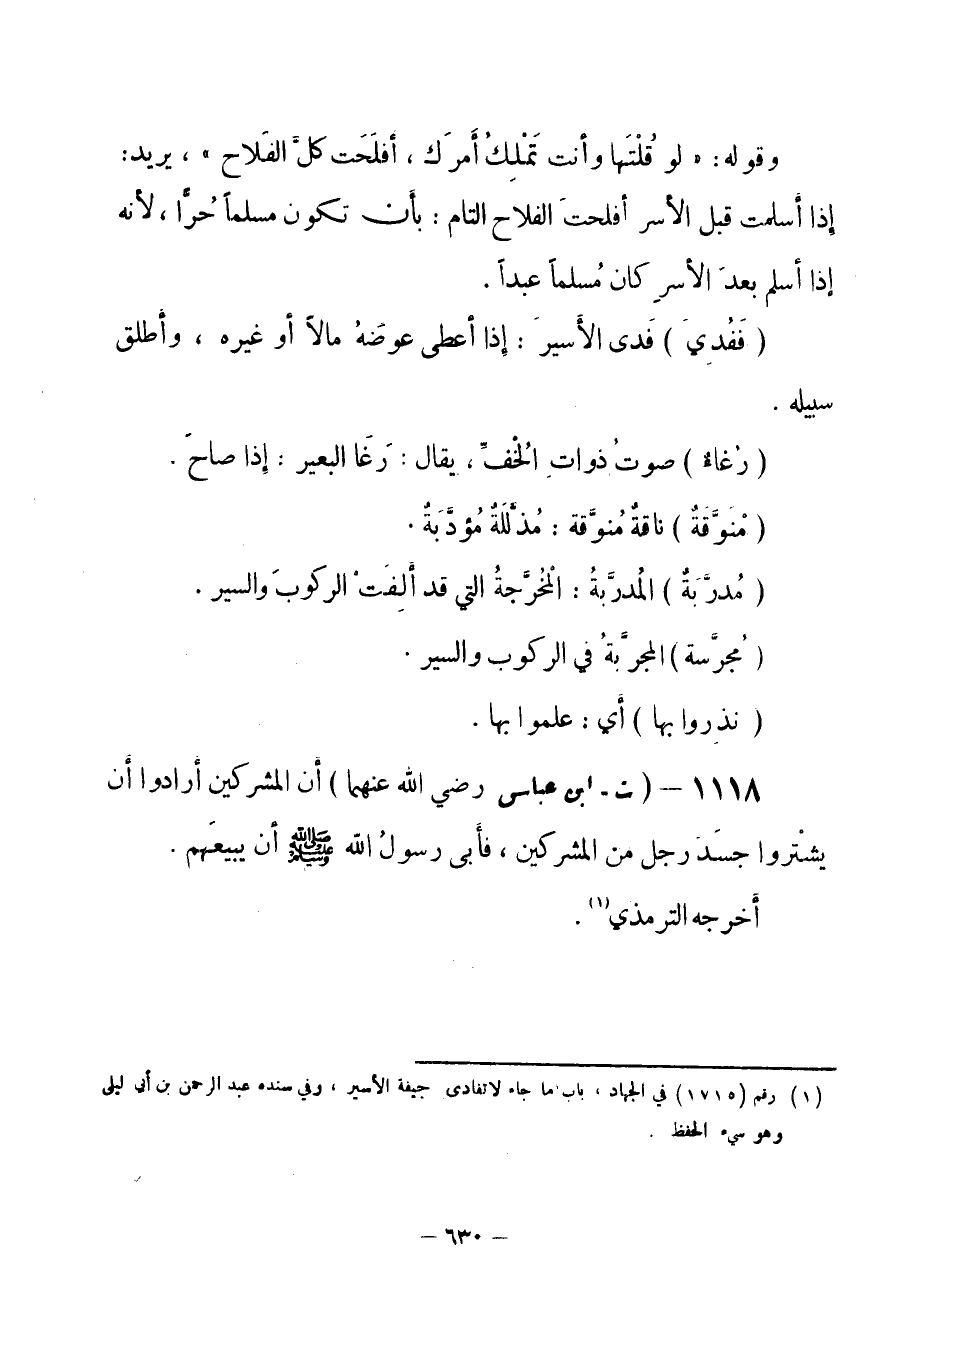 وقوله: « لو قُلْتَها وأنت تَمْلِكُ أَمرَك ، أفلَحَت كلَّ الفَلاح » ، يريد:
إذا أسلمت قبل الأسر أفلحتَ الفلاح التام : بأن تكون مسلماً حُرًّا ، لأنه
إذا أسلم بعدَ الأسرِ كان مُسلماً عبداً .
( فَفُدِيَ ) فَدى الأَسيرَ : إذا أعطى عوضَهُ مالاً أو غيره ، وأَطلق
سبيله .
( رُغاءٌ ) صوتُ ذوات الخُفِّ ، يقال : رَغَا البعير : إذا صاحَ .
( مُنَوَّقَةٌ ) ناقةٌ مُنوَّقة : مُذَلَّلَةٌ مُؤدَّبَةٌ .
( مُدرَّبَةٌ ) المُدرَّبةُ : المُخرَّجةُ التي قد أَلِفَتْ الركوبَ والسير .
( مُجرَّسة ) المجرَّبةُ في الركوب والسير .
( نذِروا بها ) أَي : علموا بها .
١١١٨ – ( ت - ابن عباس رضي الله عنهما ) أَن المشركين أَرادوا أَن
يشْتروا جسَدَ رجل من المشركين ، فأَبى رسولُ الله ﷺ أن يبيعَهم .
أَخرجه الترمذي(١) .
(١) رقم (١٧١٥) في الجهاد ، باب ما جاء لا تفادى جيفة الأسير ، وفي سنده عبد الرحمن بن أبي ليلى
وهو سيء الحفظ .
– ٦٣٠ –